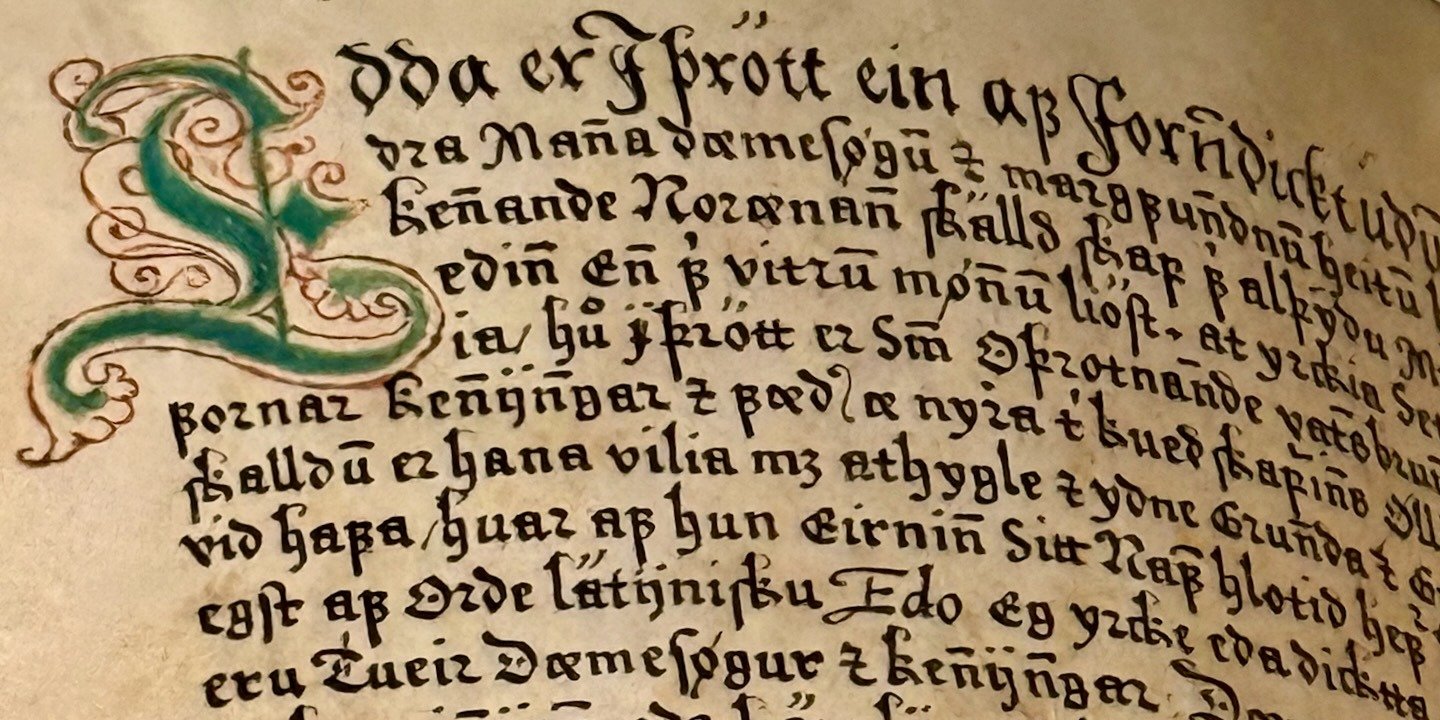 Edda er Jþrött ein aꝼ Forn̄dicktudū
dra Man̄a dæmesøgū ⁊ margꝼun̄dnū heitū
ken̄ande Norænan̄ skälld skap þ̓ alþÿdu
edin̄ En̄ þ̓ vitrū møn̄ū liöst. at yrkia
ia/ hů jþrött er Sm̄ Oþrotnan̄de vat̄sbrun̄
ꝼornar ken̄ijn̄gar ⁊ ꝼædꝛæ nyꝛa t̓ kued skap in̄s
skalldū er hana vilia mꝫ athygle ⁊ ydne Grun̄da ⁊
vid haꝼa/huar aꝼ hun Eirnin̄ Sitt Naꝼ̄ hlotid heꝼ̓
egst aꝼ Orde lätijnisku Edo Eg yrke eda dickta
eru Tueir Dæmesøgur ⁊ ken̄ijn̄gar